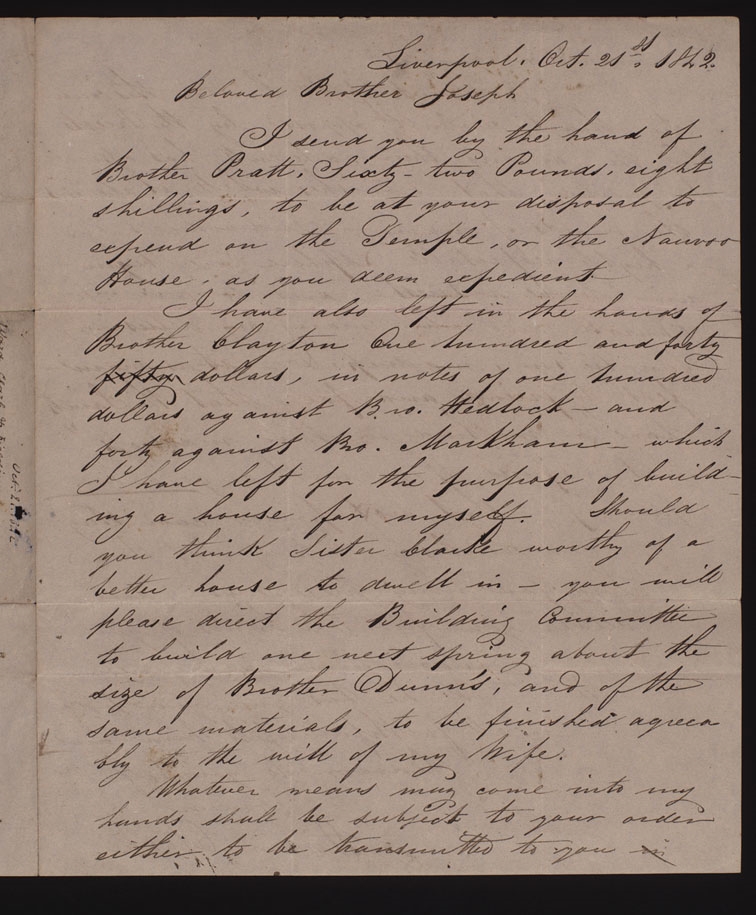 Liverpool. Oct. 21st. 1842.
Beloved Brother Joseph
I send you by the hand of
Brother Pratt, Sixty-two Pounds, eight
shillings, to be at your disposal to
expend on the Temple, or the Nauvoo
House, as you deem expedient
I have also left in the hands of
Brother Clayton One hundred and forty
fifty dollars, in notes of one hundred
dollars against Bro. Hedlock - and
forty against Bro. Markham - which
I have left for the purpose of build-
ing a house for myself. Should
you think Sister Clarke worthy of a
better house to dwell in - you will
please direct the Building Committee
to build one next spring about the
size of Brother Dunn's, and of the
same materials, to be finished agreea
bly to the will of my Wife.
Whatever means may come into my
hands shall be subject to your order
either to be transmitted to you in
Oct. 21. 1842